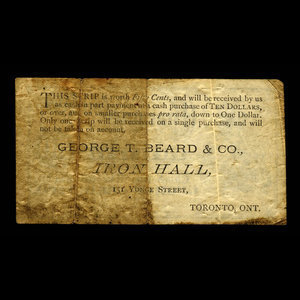 THIS SCRIP is worth Fifty Cents, and will be received by us
as cash in part payment on a cash purchase of TEN DOLLARS,
or over, and on smaller purchases pro rata, down to One Dollar.
Only one scrip will be received on a single purchase, and will
not be taken on account.
GEORGE T. BEARD & CO.,
IRON HALL,
151 YONGE STREET,
TORONTO, ONT.